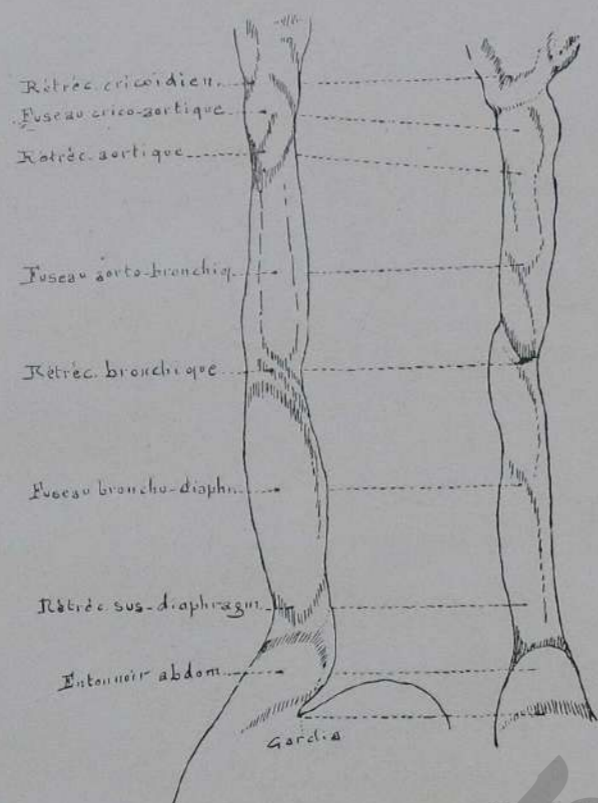 Rétréc. cricoïdien.
Fuseau crico-aortique
Rétréc. aortique
Fuseau aorto-bronchiq.
Rétréc. bronchique
Fuseau broncho-diaphr.
Rétréc. sus-diaphragm.
Entonnoir abdom.
Cardia